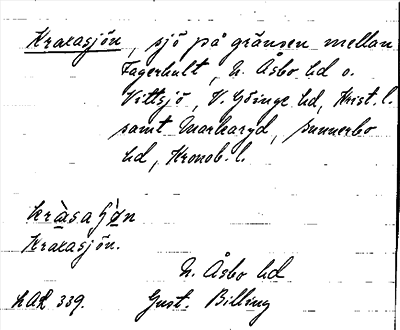 Krasasjön, sjö på gränsen mellan
Fagerhult, N. Åsbo hd o.
Vittsjö, V. Göinge hd, Krist. l.
samt Markaryd, Sunnerbo
hd, Kronob. l.
Krasasjön.
N. Åsbo hd
LAL 339. Gust. Billing